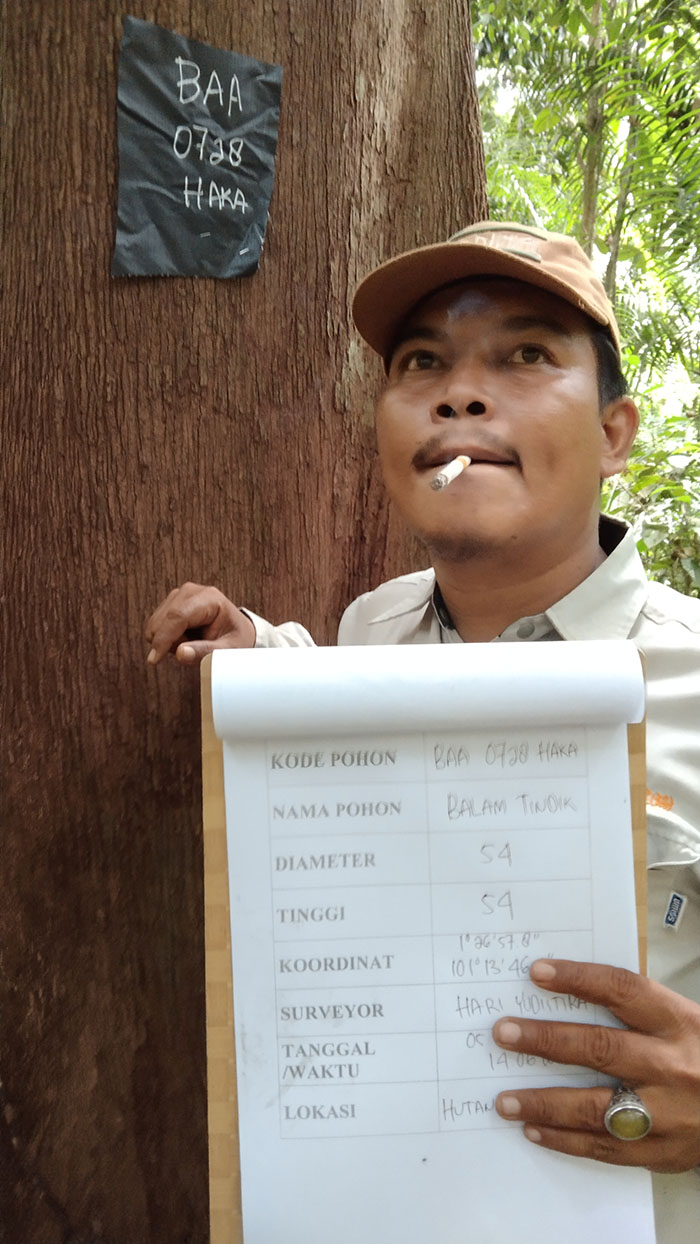 BAA
0728
HAKA
KODE POHON BAA 0728 HAKA
NAMA POHON BALAM TINDIK
DIAMETER 54
TINGGI 54
KOORDINAT 1°26'57.8"
101°13'46
SURVEYOR HARI
TANGGAL 05
/WAKTU 14 06
LOKASI HUTAN